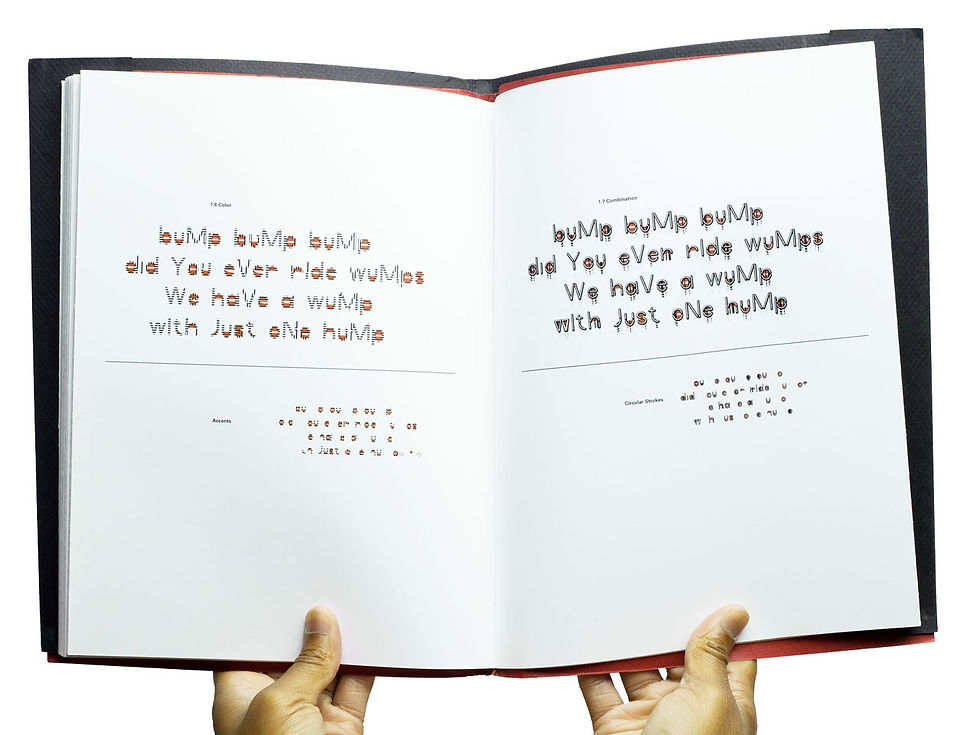 1.6 Color
buMp buMp buMp
did You eVer rIde wuMps
We haVe a wuMp
wIth Just oNe huMp
Accents
1.7 Combination
buMp buMp buMp
did You eVer rIde wuMps
We haVe a wuMp
wIth Just oNe huMp
Circular Strokes